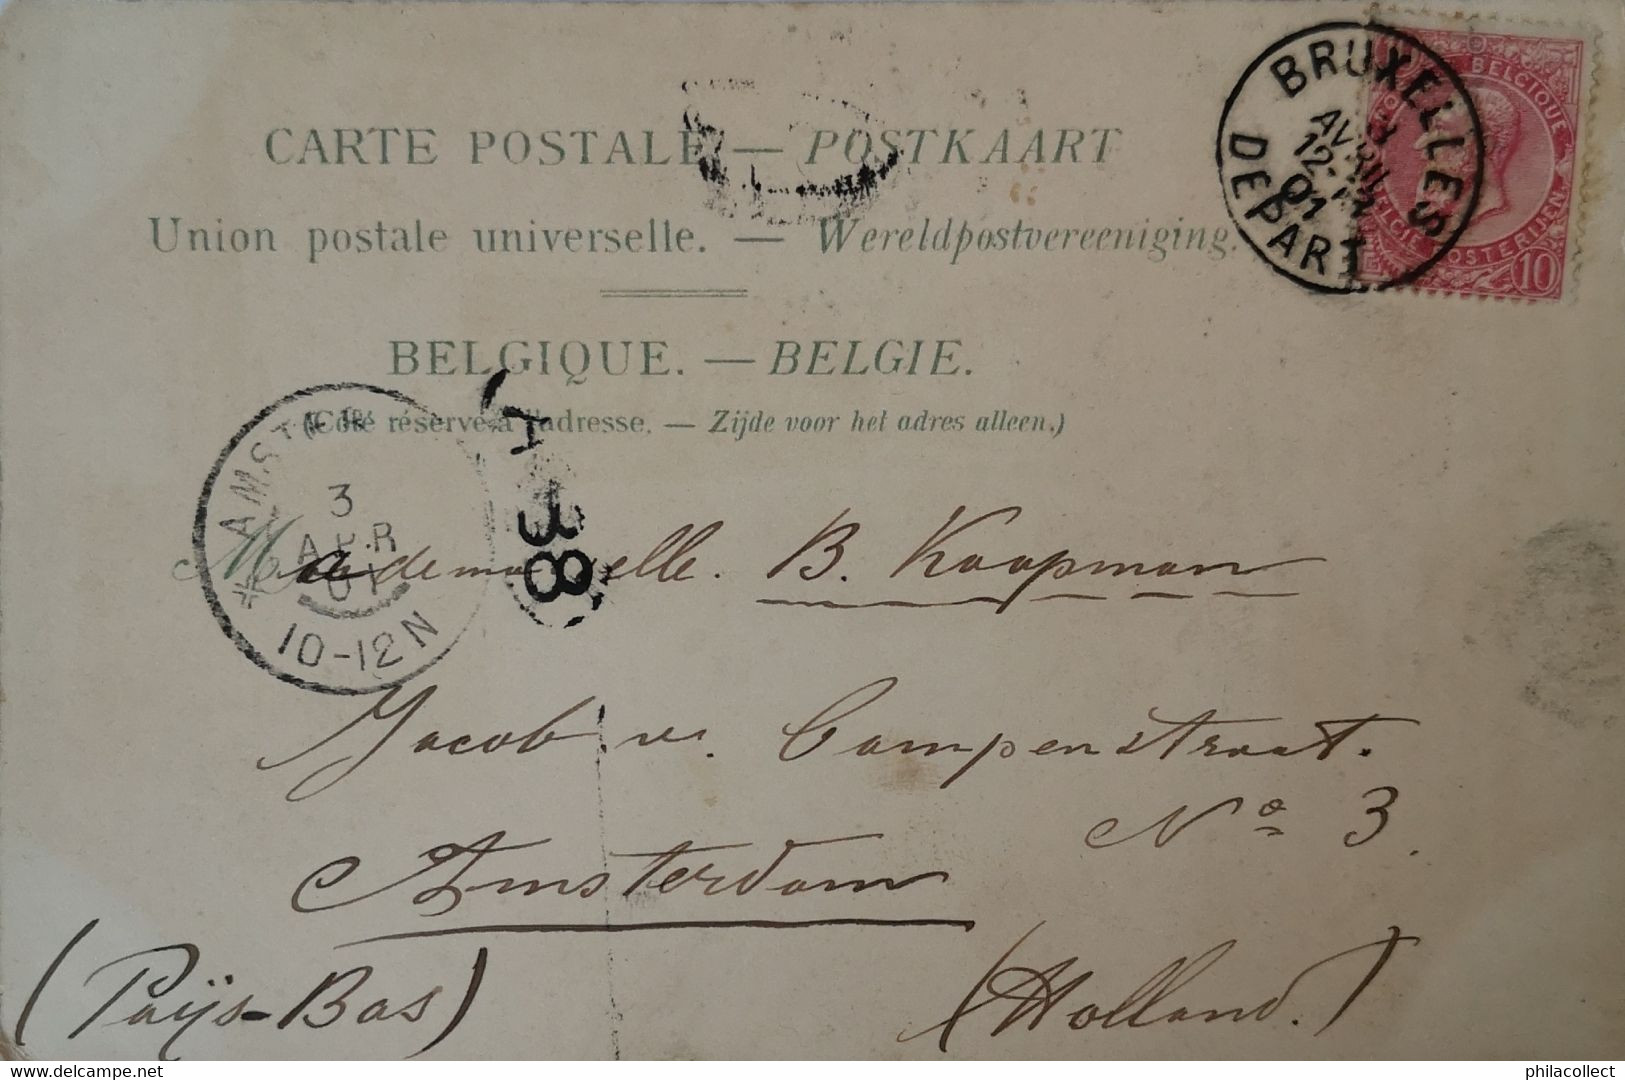 CARTE POSTALE — POSTKAART
Union postale universelle. — Wereldpostvereeniging.
BELGIQUE. — BELGIE.
(Côté réservé à l'adresse. — Zijde voor het adres alleen.)
BRUXELLES
AVRIL
01
DEPART
BELGIQUE
POSTERIJEN
10
AMSTER
3
APR
01
10-12N
A
38
Mademoiselle. B. Koopman
Jacob. v. Campenstraat.
Nº 3.
Amsterdam
(Paÿs-Bas) (Holland.)
www.delcampe.net
philacollect